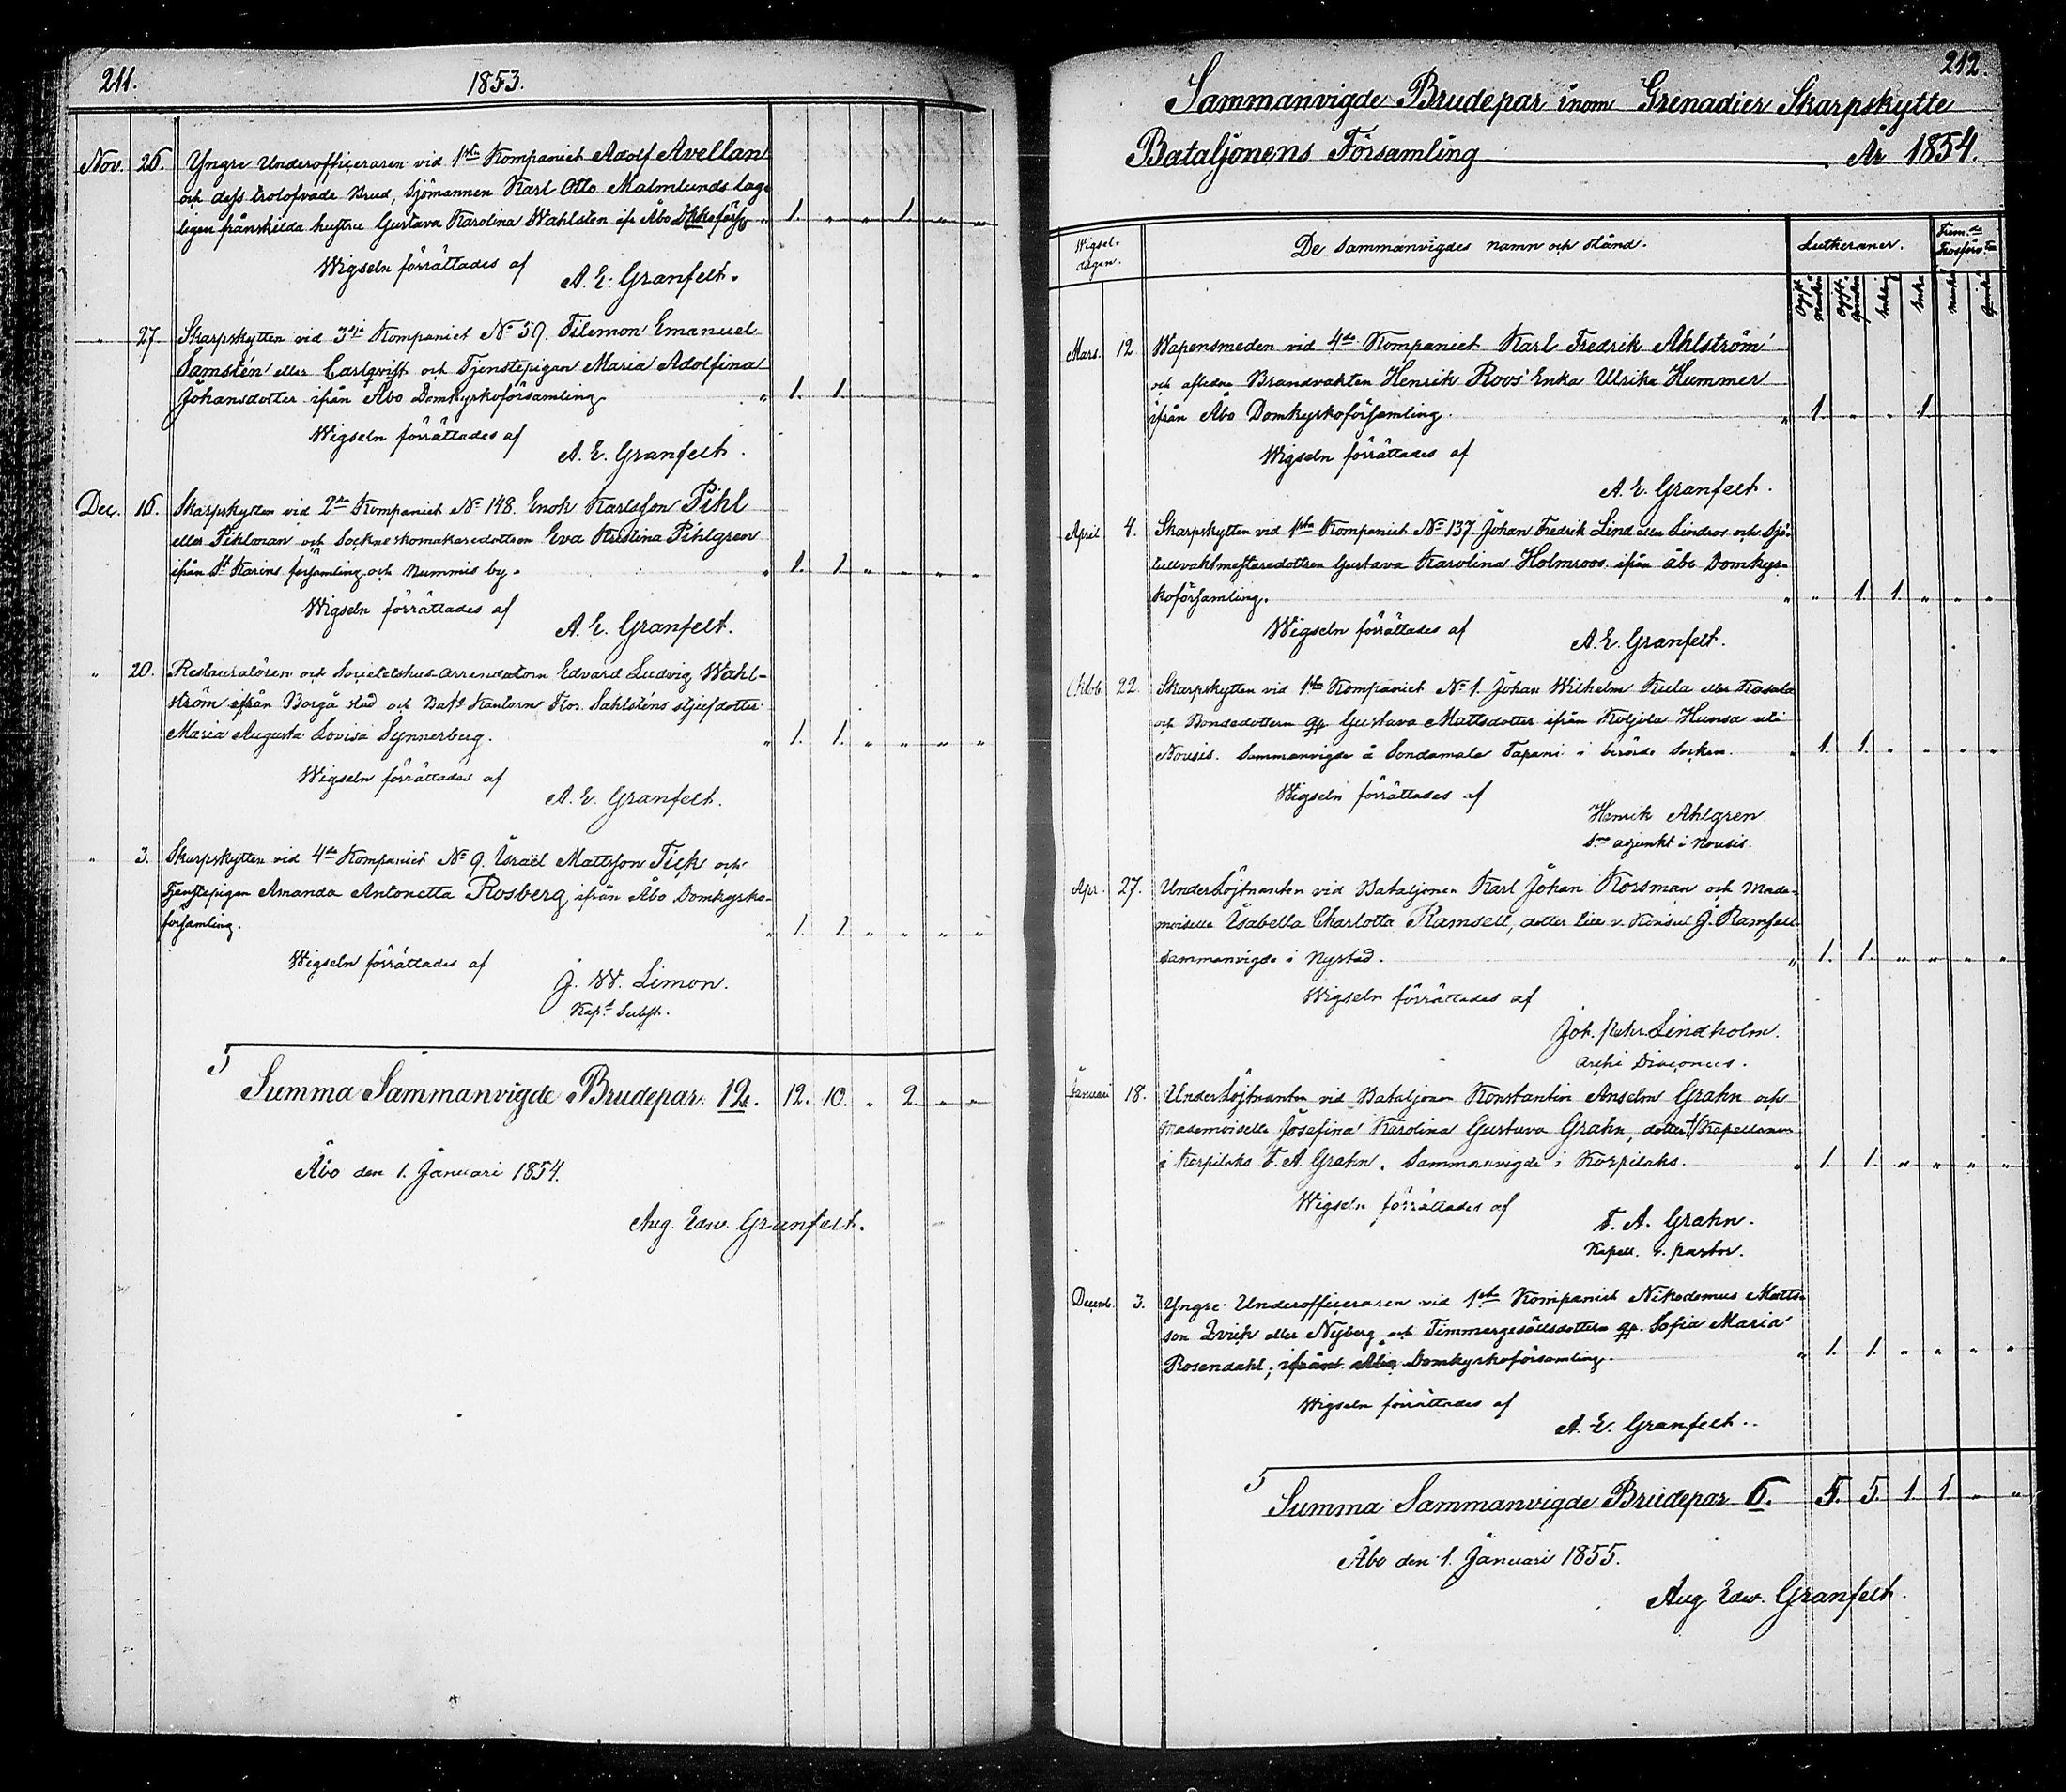 211.
1853.
Nov. 26. Yngre Underofficeraren vid 1sta Kompaniet Adolf Avellan
och dess trolofvade Brud, Sjömannen Karl Otto Malmlunds lag-
ligen frånskilda hustru Gustava Karolina Wahlsten ifr Åbo " 1. " " 1. " "
Wigseln förrättades af
A. E. Granfelt.
" 27. Skarpskytten vid 3dje Kompaniet No 59. Filemon Emanuel
Samstén eller Carlqvist och Tjenstepigan Maria Adolfina
Johansdotter ifrån Åbo Domkyrkoförsamling. " 1. 1.
Wigseln förrättades af
A. E. Granfelt.
Dec. 16. Skarpskytten vid 2dra Kompaniet No 148. Enok Karlsson Pihl
eller Pihlman och Sockneskomakaredottren Eva Kristina Pihlgren
ifrån St Karins församling och Nummis by. " 1. 1. " " " "
Wigseln förrättades af
A. E. Granfelt.
" 20. Restauratören och Societetshus-arrendatorn Edvard Ludvig Wahl-
ström ifrån Borgå stad och Bats Kantorn Flor. Sahlsténs stjufdotter
Maria Augusta Lovisa Synnerberg. " 1. 1. " " " "
Wigseln förrättades af
A. E. Granfelt.
" 3. Skarpskytten vid 4de Kompaniet No 9. Israël Mattsson Tick och
Tjenstepigan Amanda Antonetta Rosberg, ifrån Åbo Domkyrko-
församling. " 1. 1. " " " "
Wigseln förrättades af
J. W. Limon.
Kapls Subst.
Summa Sammanvigde Brudepar. 12. 12. 10. " 2. " "
Åbo den 1. Januari 1854.
Aug. Edw. Granfelt.
212.
Sammanvigde Brudepar inom Grenadier Skarpskytte
Bataljonens Församling År 1854.
Wigsel-
dagen.
De Sammanvigdes namn och stånd.
Lutheraner.
Främ.de
Trosförv.ter
Mars. 12. Wapensmeden vid 4de Kompaniet Karl Fredrik Ahlström
och aflidne Brandvakten Henrik Roos' Enka Ulrika Hummer
ifrån Åbo Domkyrkoförsamling. " 1. " " 1.
Wigseln förrättades af
A. E. Granfelt.
April 4. Skarpskytten vid 1sta Kompaniet No 137. Johan Fredrik Lind eller Lindros och Sjö-
tullvaktmästaredottren Gustava Karolina Holmroos ifrån Åbo Domkyr-
koförsamling. " " 1. 1. " " "
Wigseln förrättades af
A. E. Granfelt.
Oktob. 22. Skarpskytten vid 1sta Kompaniet No 1. Johan Wilhelm Kula eller Kosala
och Bondedottern Gustava Mattsdotter ifrån Koljola Hunsa uti
Nousis. Sammanvigde å Sondamala Tapani i berörde Socken. " 1. 1. " " " "
Wigseln förrättades af
Henrik Ahlgren
adjunkt i Nousis.
Apr. 27. Underlöjtnanten vid Bataljonen Karl Johan Korsman och Made-
moiselle Isabella Charlotta Ramsell, dotter till v. Konsul J. Ramsell
Sammanvigde i Nystad. " 1. 1. " " " "
Wigseln förrättades af
Joh. Petr. Lindholm.
Archi Diaconus.
Januari 18. Underlöjtnanten vid Bataljonen Konstantin Anselm Grahn och
Mademoiselle Josefina Karolina Gustava Grahn, dotter t/ Kapellanen
i Korpilaks F. A. Grahn. Sammanvigde i Korpilaks. " 1. 1. " " " "
Wigseln förrättades af
F. A. Grahn.
Kapell. v. pastor.
Decemb. 3. Yngre Underofficeraren vid 1sta Kompaniet Nikodemus Matts-
son Qvick eller Nyberg och Timmergesällsdottern Sofia Maria
Rosendahl, ifrån Åbo Domkyrkoförsamling. " 1. 1. " " " "
Wigseln förrättades af
A. E. Granfelt.
Summa Sammanvigde Brudepar 6. 5. 5. 1. 1. " "
Åbo den 1. Januari 1855.
Aug. Edw. Granfelt.